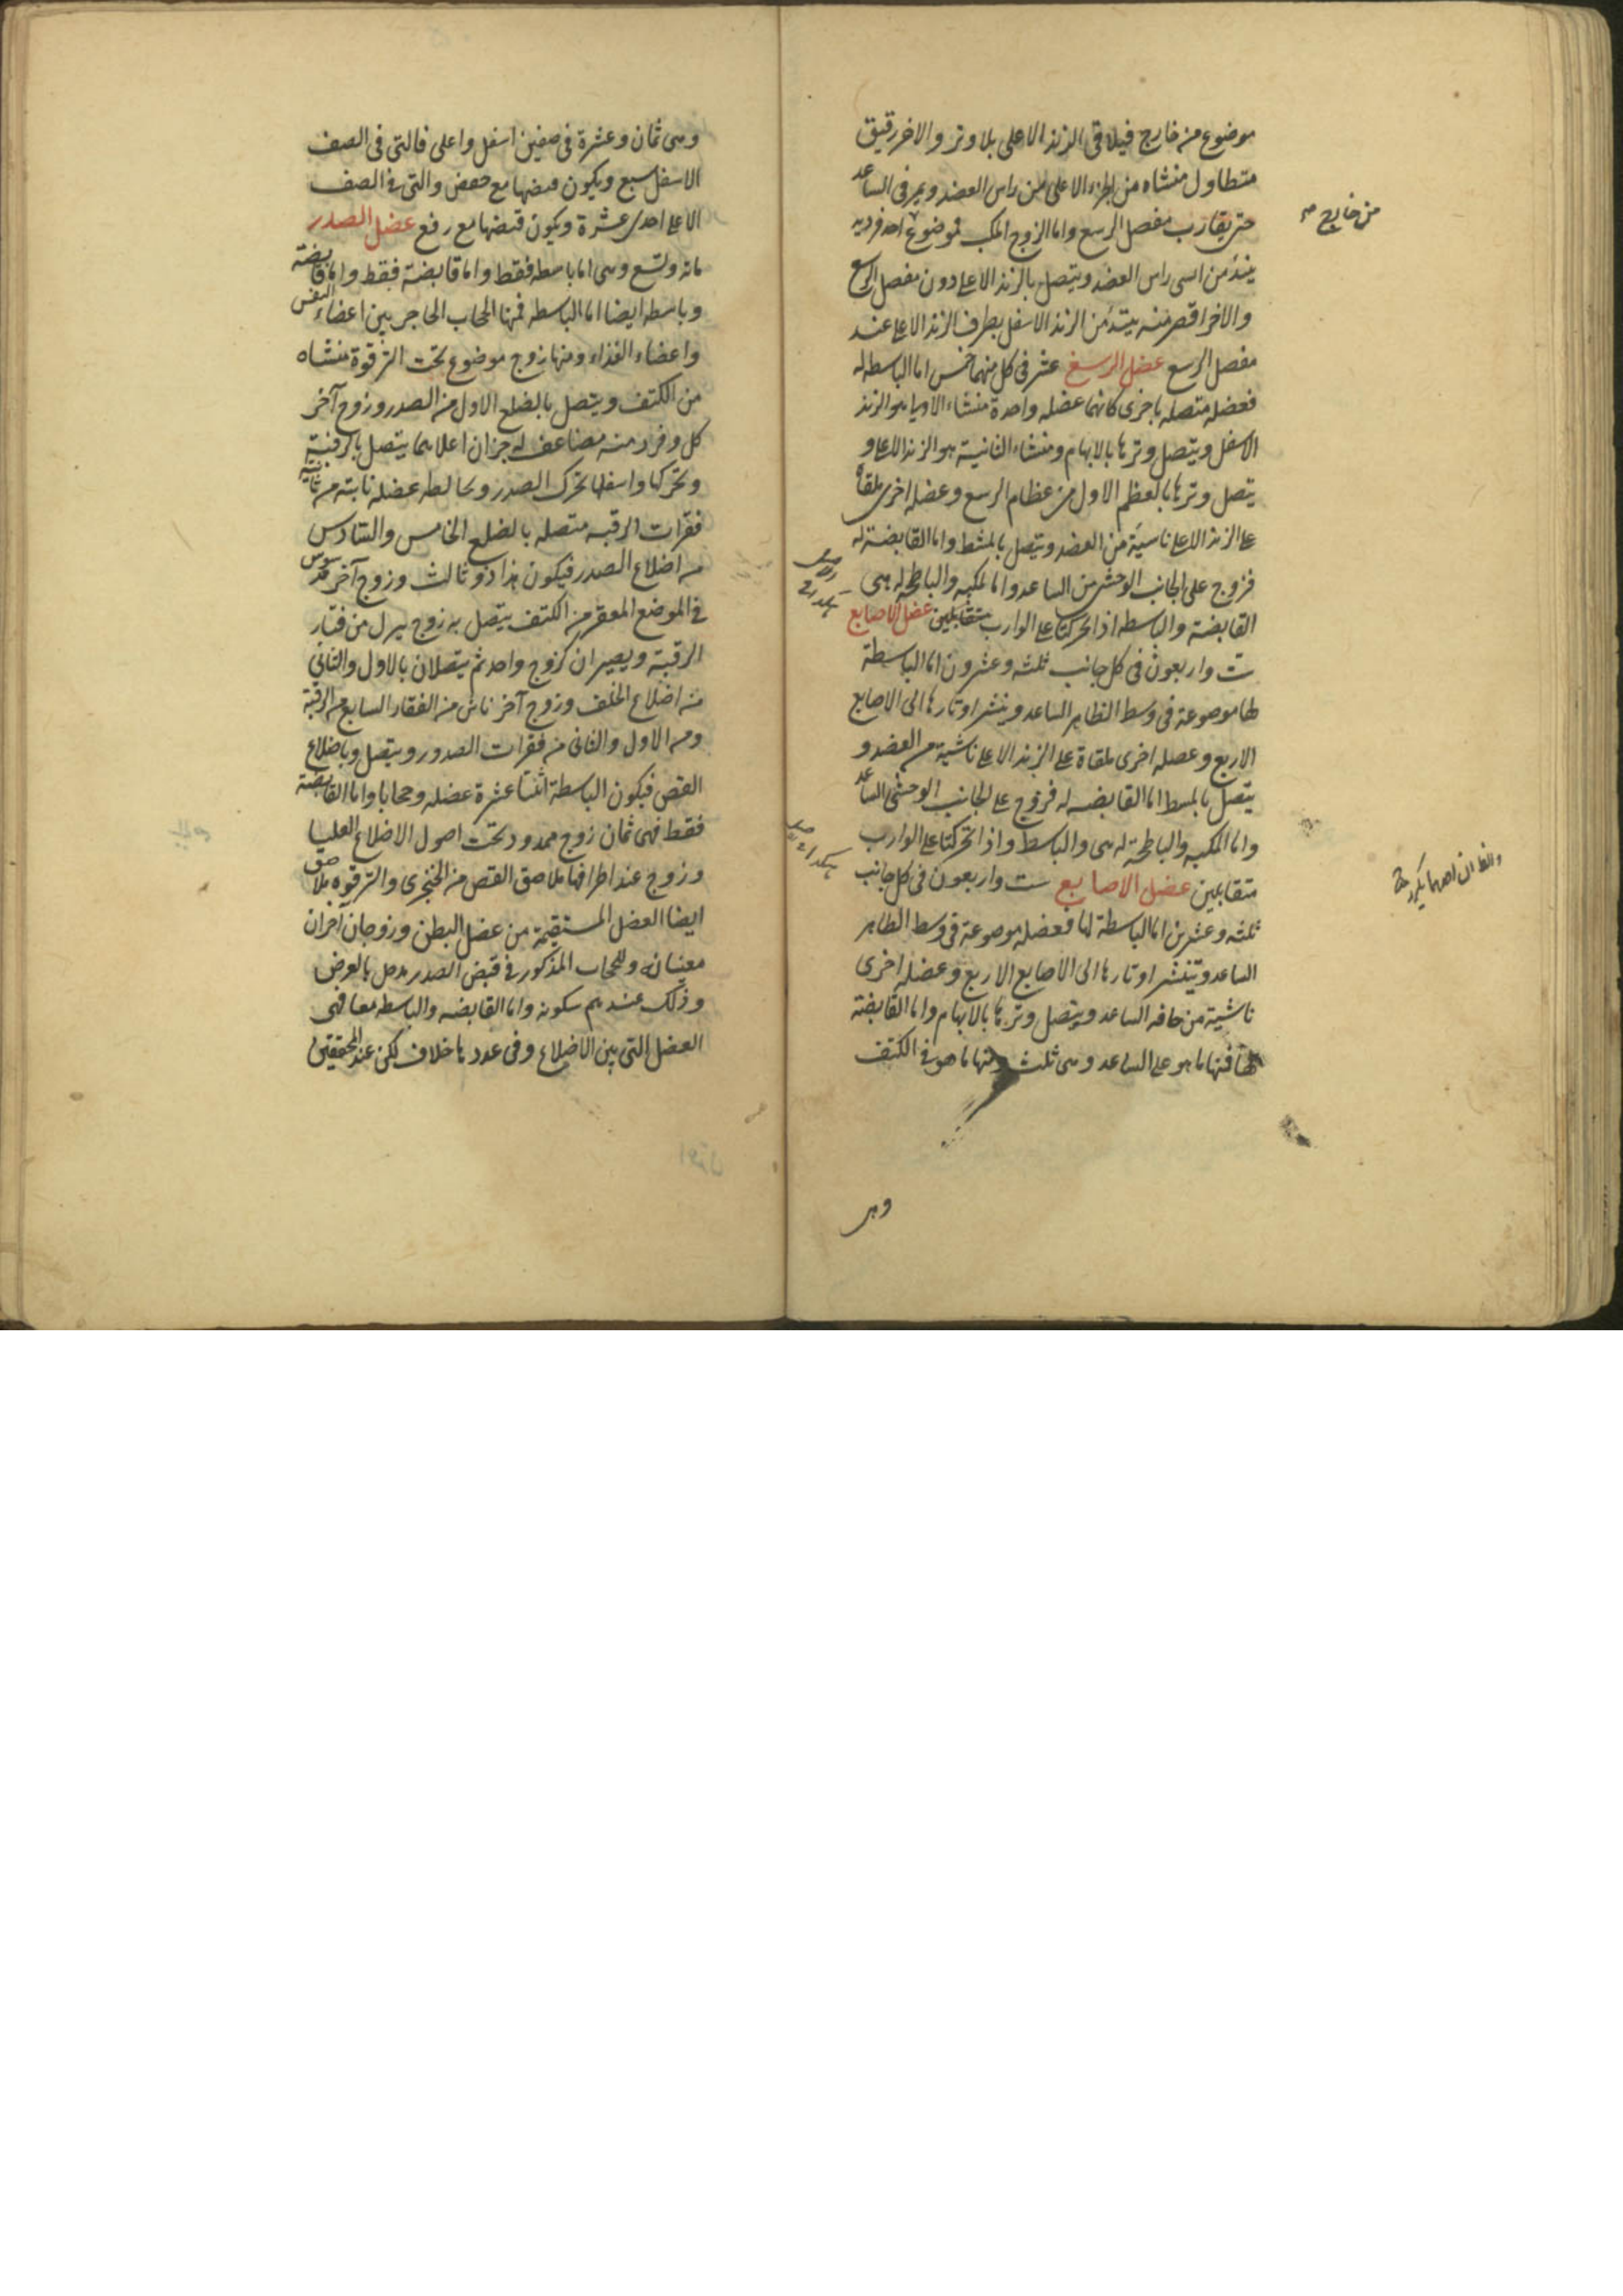 موضوع من خارج فيلاقى الزند الاعلى بلا وتر والاخر رقيق
متطاول منشاه من الجزء الاعلى من راس العضد ويمر فى الساعد
حتى يقارب مفصل الرسغ واما الزوج المكب فموضوع احد فرديه
من خارج صح
يبتدئ من انسى راس العضد ويتصل بالزند الاعلى دون مفصل الرسغ
والاخر اقصر منه يبتدئ من الزند الاسفل بطرف الزند الاعلى عند
مفصل الرسغ عضل الرسغ عشر فى كل منهما خمس اما الباسطه له
فعضله متصله باخرى كانهما عضله واحدة منشاء الاولى هو الزند
الاسفل ويتصل وترها بالابهام ومنشاء الثانية هو الزند الاعلى و
يتصل وترها بالعظم الاول من عظام الرسغ وعضله اخرى ملقاة
على الزند الاعلى ناشية من العضد ويتصل بالمشط واما القابضة له
فزوج على الجانب الوحشى من الساعد واما المكبه والباطحة له هى
القابضة والباسطه اذا تحركتا على الوارب متقابلين عضل الاصابع
ست واربعون فى كل جانب ثلثه وعشرون اما الباسطة
لها موضوعة فى وسط الظاهر الساعد وينشر اوتارها الى الاصابع
الاربع وعضله اخرى ملقاة على الزند الاعلى ناشية من العضد و
يتصل بالمشط اما القابضه له فزوج على الجانب الوحشى الساعد
واما المكبه والباطحة له هى والباسط واذا تحركتا على الوارب
متقابلين عضل الاصابع ست واربعون فى كل جانب
ثلثه وعشرين اما الباسطة لها فعضله موضوعة فى وسط الظاهر
الساعد وتنشر اوتارها الى الاصابع الاربع وعضله اخرى
ناشية من حافه الساعد ويتصل وترها بالابهام واما القابضة
لها فمنها ما هو على الساعد وهى ثلث ومنها ما هو فى الكتف
وهى
وهى ثمان وعشرة فى صفين اسفل واعلى فالتى فى الصف
الاسفل سبع ويكون قبضها مع خفض والتى فى الصف
الاعلى احدى عشرة ويكون قبضها مع رفع عضل الصدر
مائه وتسع وهى اما باسطه فقط واما قابضة فقط واما قابضة
وباسطه ايضا اما الباسطه فمنها الحجاب الحاجز بين اعضاء النفس
واعضاء الغذاء ومنها زوج موضوع تحت الترقوة منشاه
من الكتف ويتصل بالضلع الاول من الصدر وزوج آخر
كل وفرد منه مضاعف له جزان اعلاهما يتصل بالرقبة
وتحركها واسفلها تحرك الصدر وخالطه عضله نابته من ثانية
فقرات الرقبه متصله بالضلع الخامس والسادس
من اضلاع الصدر فيكون هذا ذو ثالث وزوج آخر مدسوس
فى الموضع المقعر من الكتف يتصل به زوج ينزل من فقار
الرقبة ويصيران كزوج واحد ثم يتصلان بالاول والثانى
من اضلاع الخلف وزوج آخر ناش من الفقار السابع من الرقبة
ومن الاول والثانى من فقرات الصدور ويتصل وباضلاع
القص فيكون الباسطة اثنتا عشرة عضله وحجابا واما القابضة
فقط فهى ثمان زوج ممدود تحت اصول الاضلاع العليا
وزوج عند اطرافها يلاصق القص من الخنجرى والترقوه يلاصق
ايضا العضل المستقيمة من عضل البطن وزوجان آخران
معينانه وللحجاب المذكور فى قبض الصدر مدخل بالعرض
وذلك عندهم سكونه واما القابضه والباسطه معا فهى
العضل التى بين الاضلاع وفى عددها خلاف لكن عند المحققين